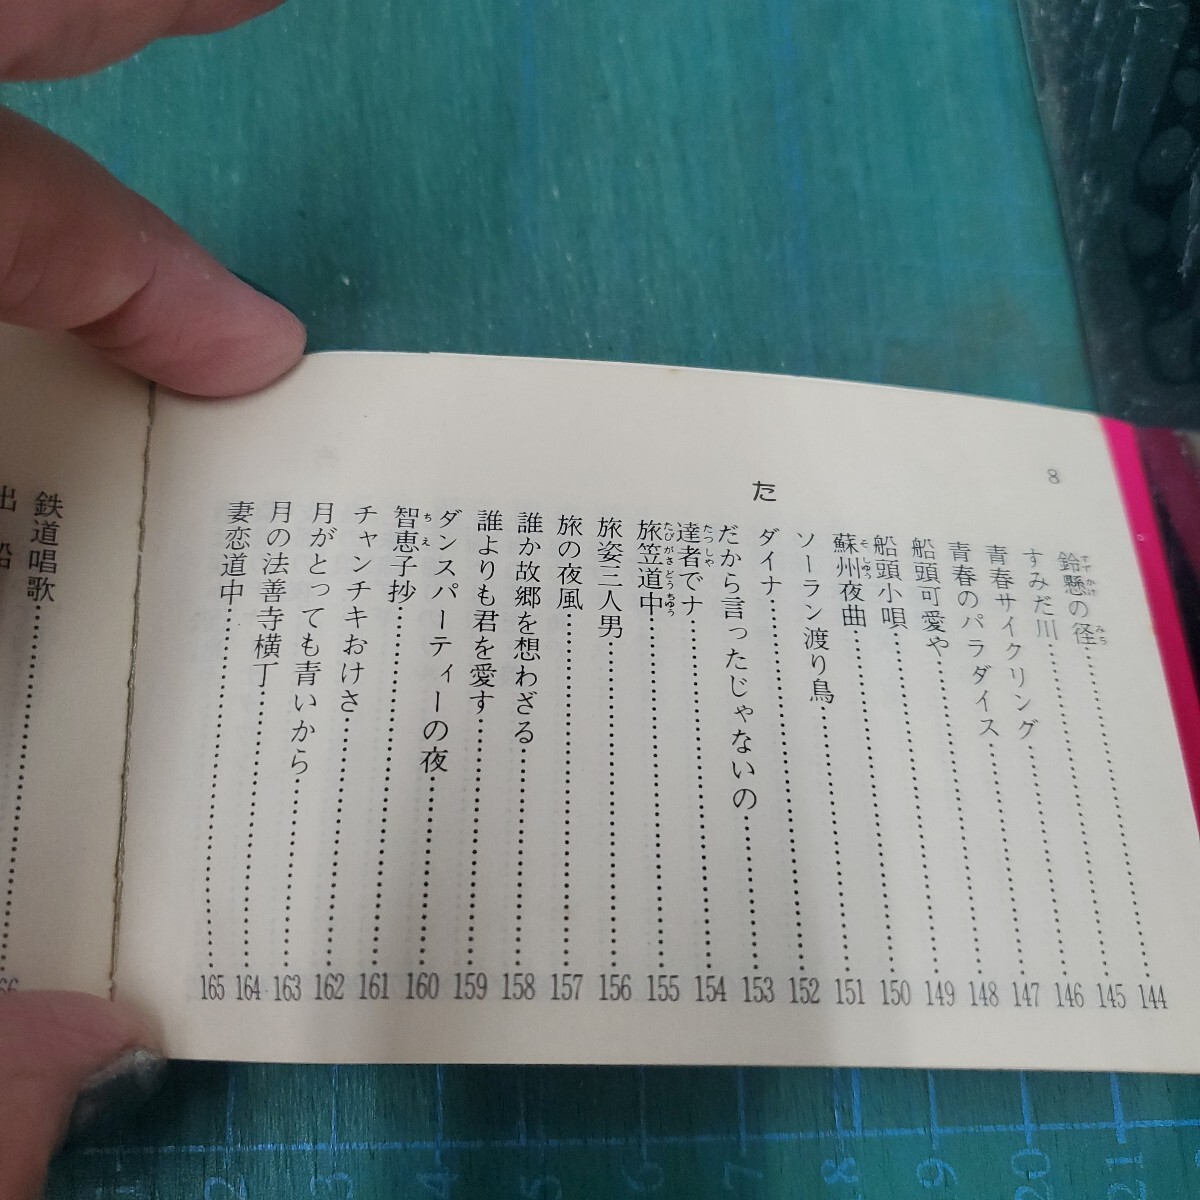 8
鈴懸の径……144
すゞ かけ みち
すみだ川……145
青春サイクリング……146
青春のパラダイス……147
船頭可愛や……148
船頭小唄……149
蘇州夜曲……150
そしゆう
ソーラン渡り鳥……151
た
ダイナ……152
だから言ったじゃないの……153
達者でナ……154
たつしや
旅笠道中……155
たびがさ どうちゆう
旅姿三人男……156
旅の夜風……157
誰か故郷を想わざる……158
誰よりも君を愛す……159
ダンスパーティーの夜……160
智恵子抄……161
ち え
チャンチキおけさ……162
月がとっても青いから……163
月の法善寺横丁……164
妻恋道中……165
鉄道唱歌……
出船
2
3
4
5
6
7
8
9
10
11